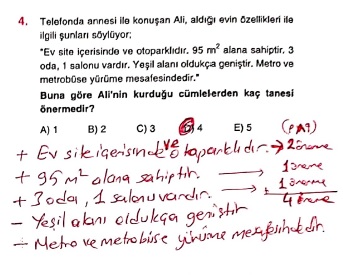 4. Telefonda annesi ile konuşan Ali, aldığı evin özellikleri ile
ilgili şunları söylüyor;
"Ev site içerisinde ve otoparklıdır. 95 m² alana sahiptir, 3
oda, 1 salonu vardır. Yeşil alanı oldukça geniştir. Metro ve
metrobüse yürüme mesafesindedir."
Buna göre Ali'nin kurduğu cümlelerden kaç tanesi
önermedir?
A) 1 B) 2 C) 3 D) 4 E) 5 (p∧q)
+ Ev site içerisinde ve otoparklıdır. → 2 önerme
+ 95 m² alana sahiptir. → 1 önerme
+ 3 oda, 1 salonu vardır. → 1 önerme
+ 4 önerme
- Yeşil alanı oldukça geniştir
- Metro ve metrobüse yürüme mesafesindedir.